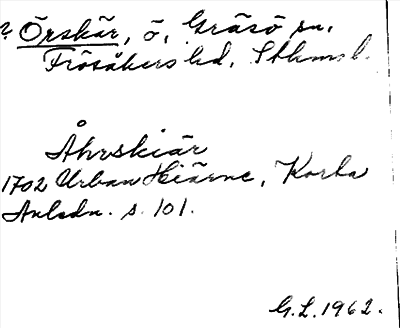 ? Örskär, ö, Gräsö sn,
Frösåkers hd, Sthms l.
Åhrskiär
1702 Urban Hiärne, Korta
Anledn. s. 101.
G.L. 1962.